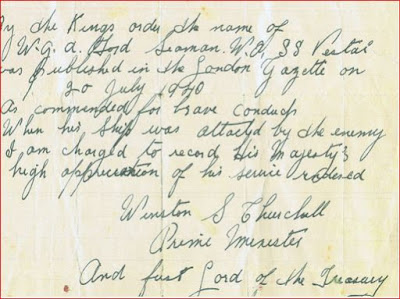 By the Kings order the name of
W.G.A. Ford Seaman. W.O, SS Vestal
was Published in the London Gazette on
20 July 1940
As commended for brave conduct
When his Ship was attactd by the enemy
I am charged to record His Majesty's
high appreciation of his service rodered
Winston S Churchall
Prime Menester
And first Lord of the Treasury